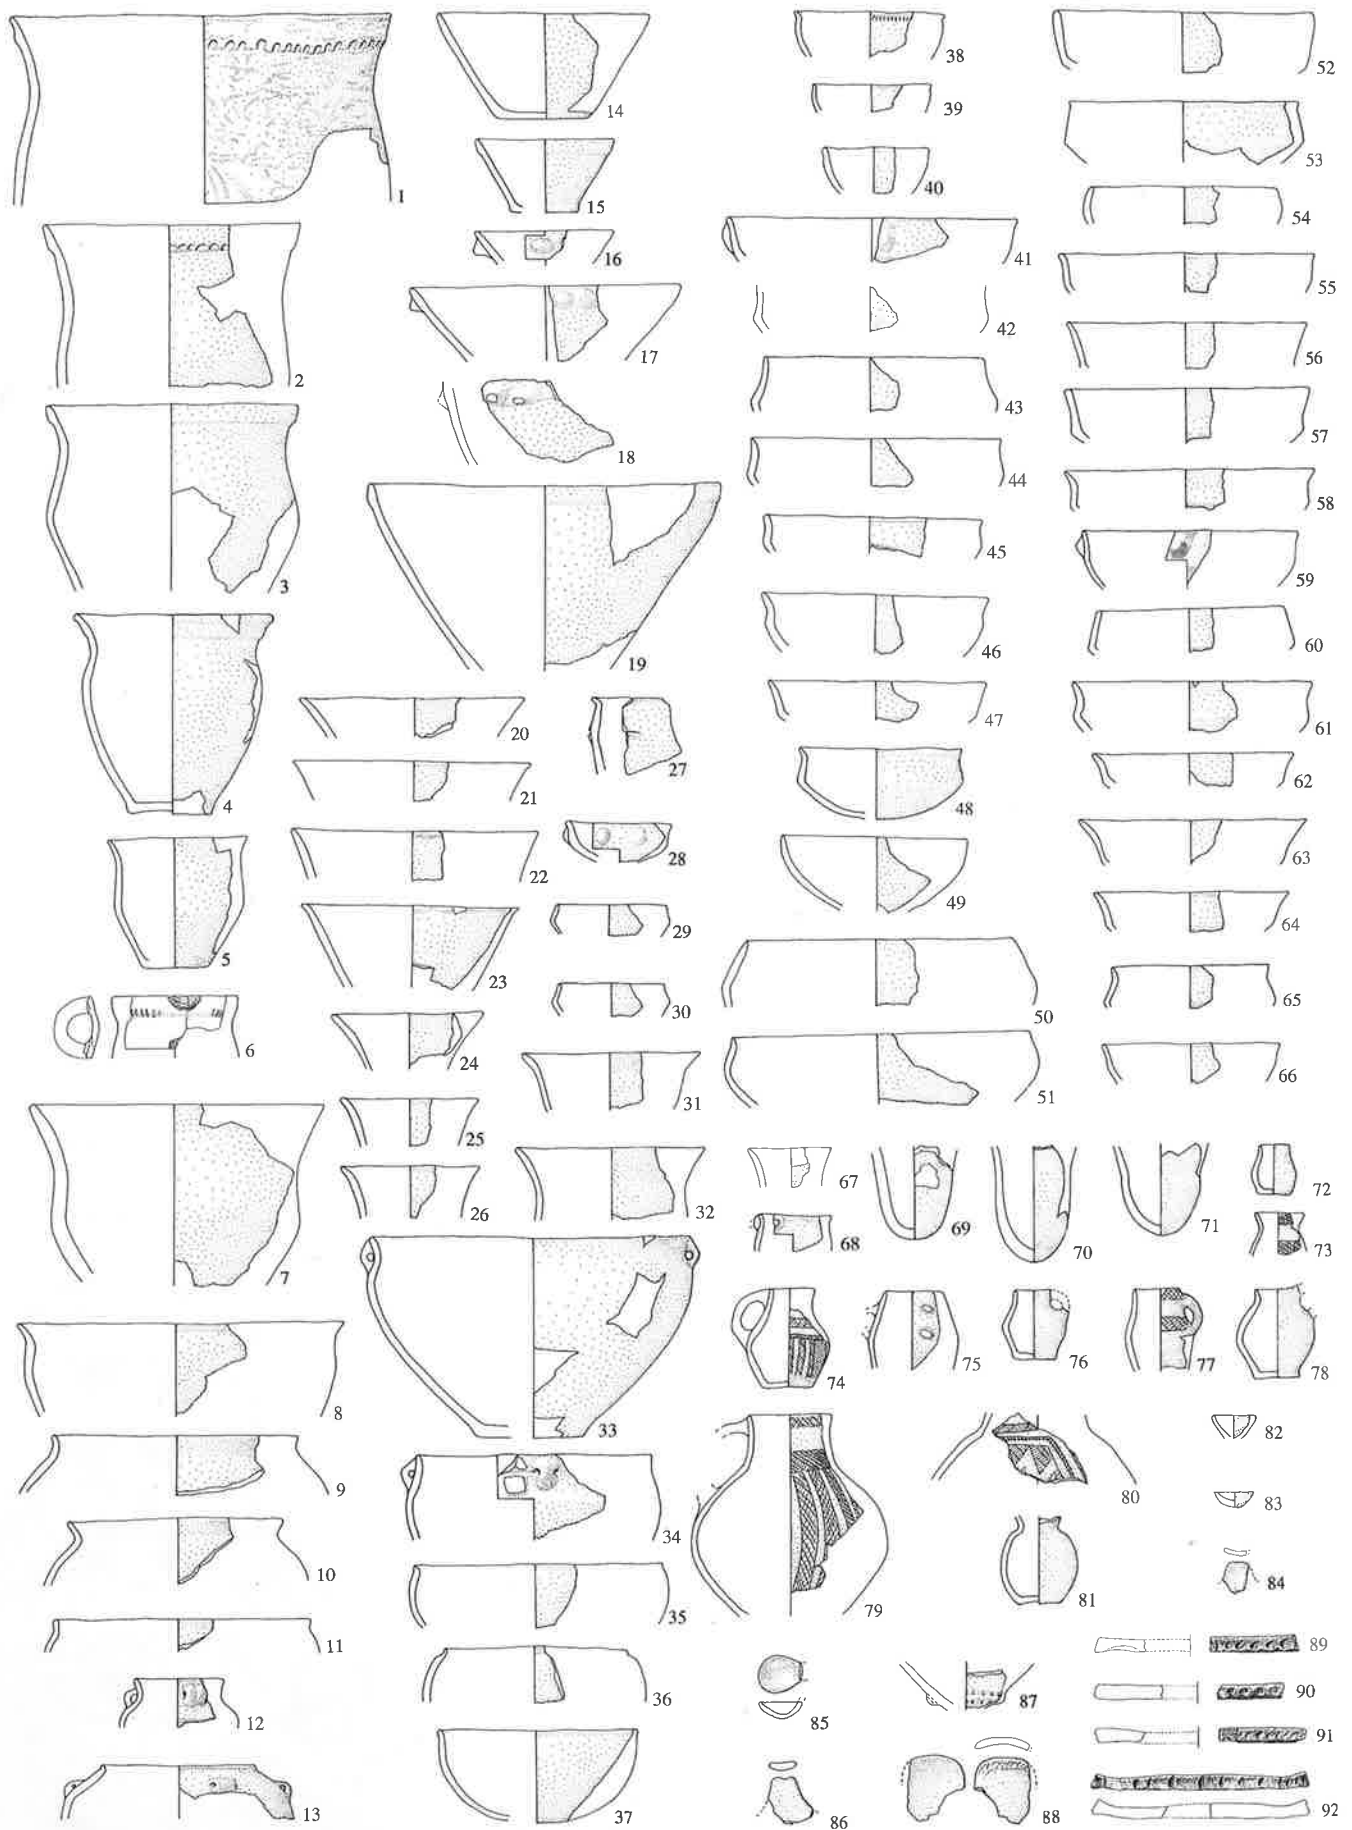 1
2
3
4
5
6
7
8
9
10
11
12
13
14
15
16
17
18
19
20
21
22
23
24
25
26
27
28
29
30
31
32
33
34
35
36
37
38
39
40
41
42
43
44
45
46
47
48
49
50
51
52
53
54
55
56
57
58
59
60
61
62
63
64
65
66
67
68
69
70
71
72
73
74
75
76
77
78
79
80
81
82
83
84
85
86
87
88
89
90
91
92